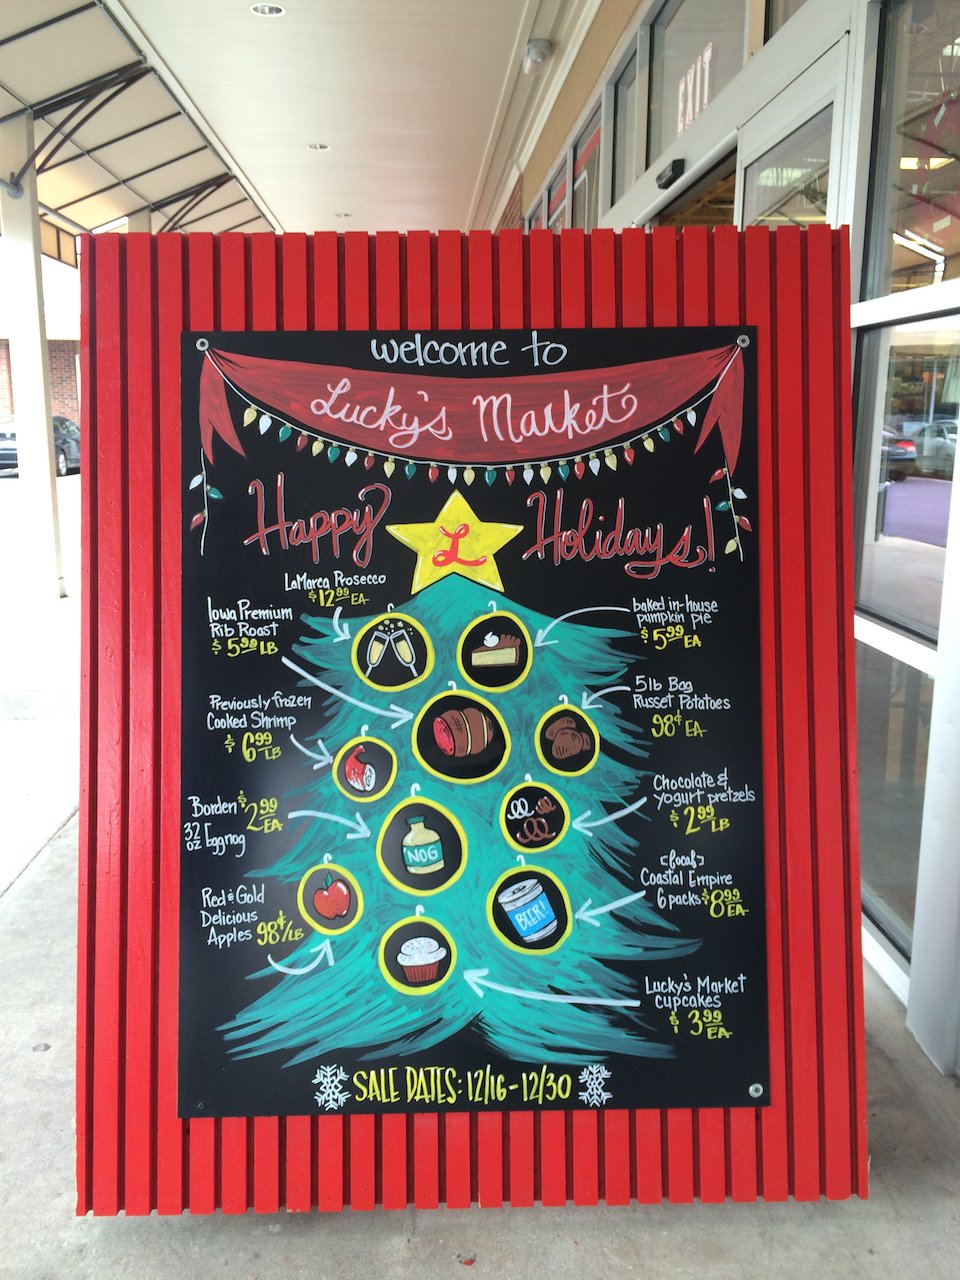 EXIT
welcome to
Lucky's Market
Happy Holidays!
L
LaMarca Prosecco
$12.99 EA
Iowa Premium
Rib Roast
$5.99 LB
baked in-house
pumpkin pie
$5.99 EA
Previously frozen
Cooked Shrimp
$6.99 LB
5lb Bag
Russet Potatoes
98¢ EA
Borden $2.99 EA
32 oz Eggnog
NOG
Chocolate &
yogurt pretzels
$2.99 LB
Red & Gold
Delicious
Apples 98¢/LB
[local]
Coastal Empire
6 packs $8.99 EA
BEER!
Lucky's Market
cupcakes
$3.99 EA
SALE DATES: 12/16-12/30